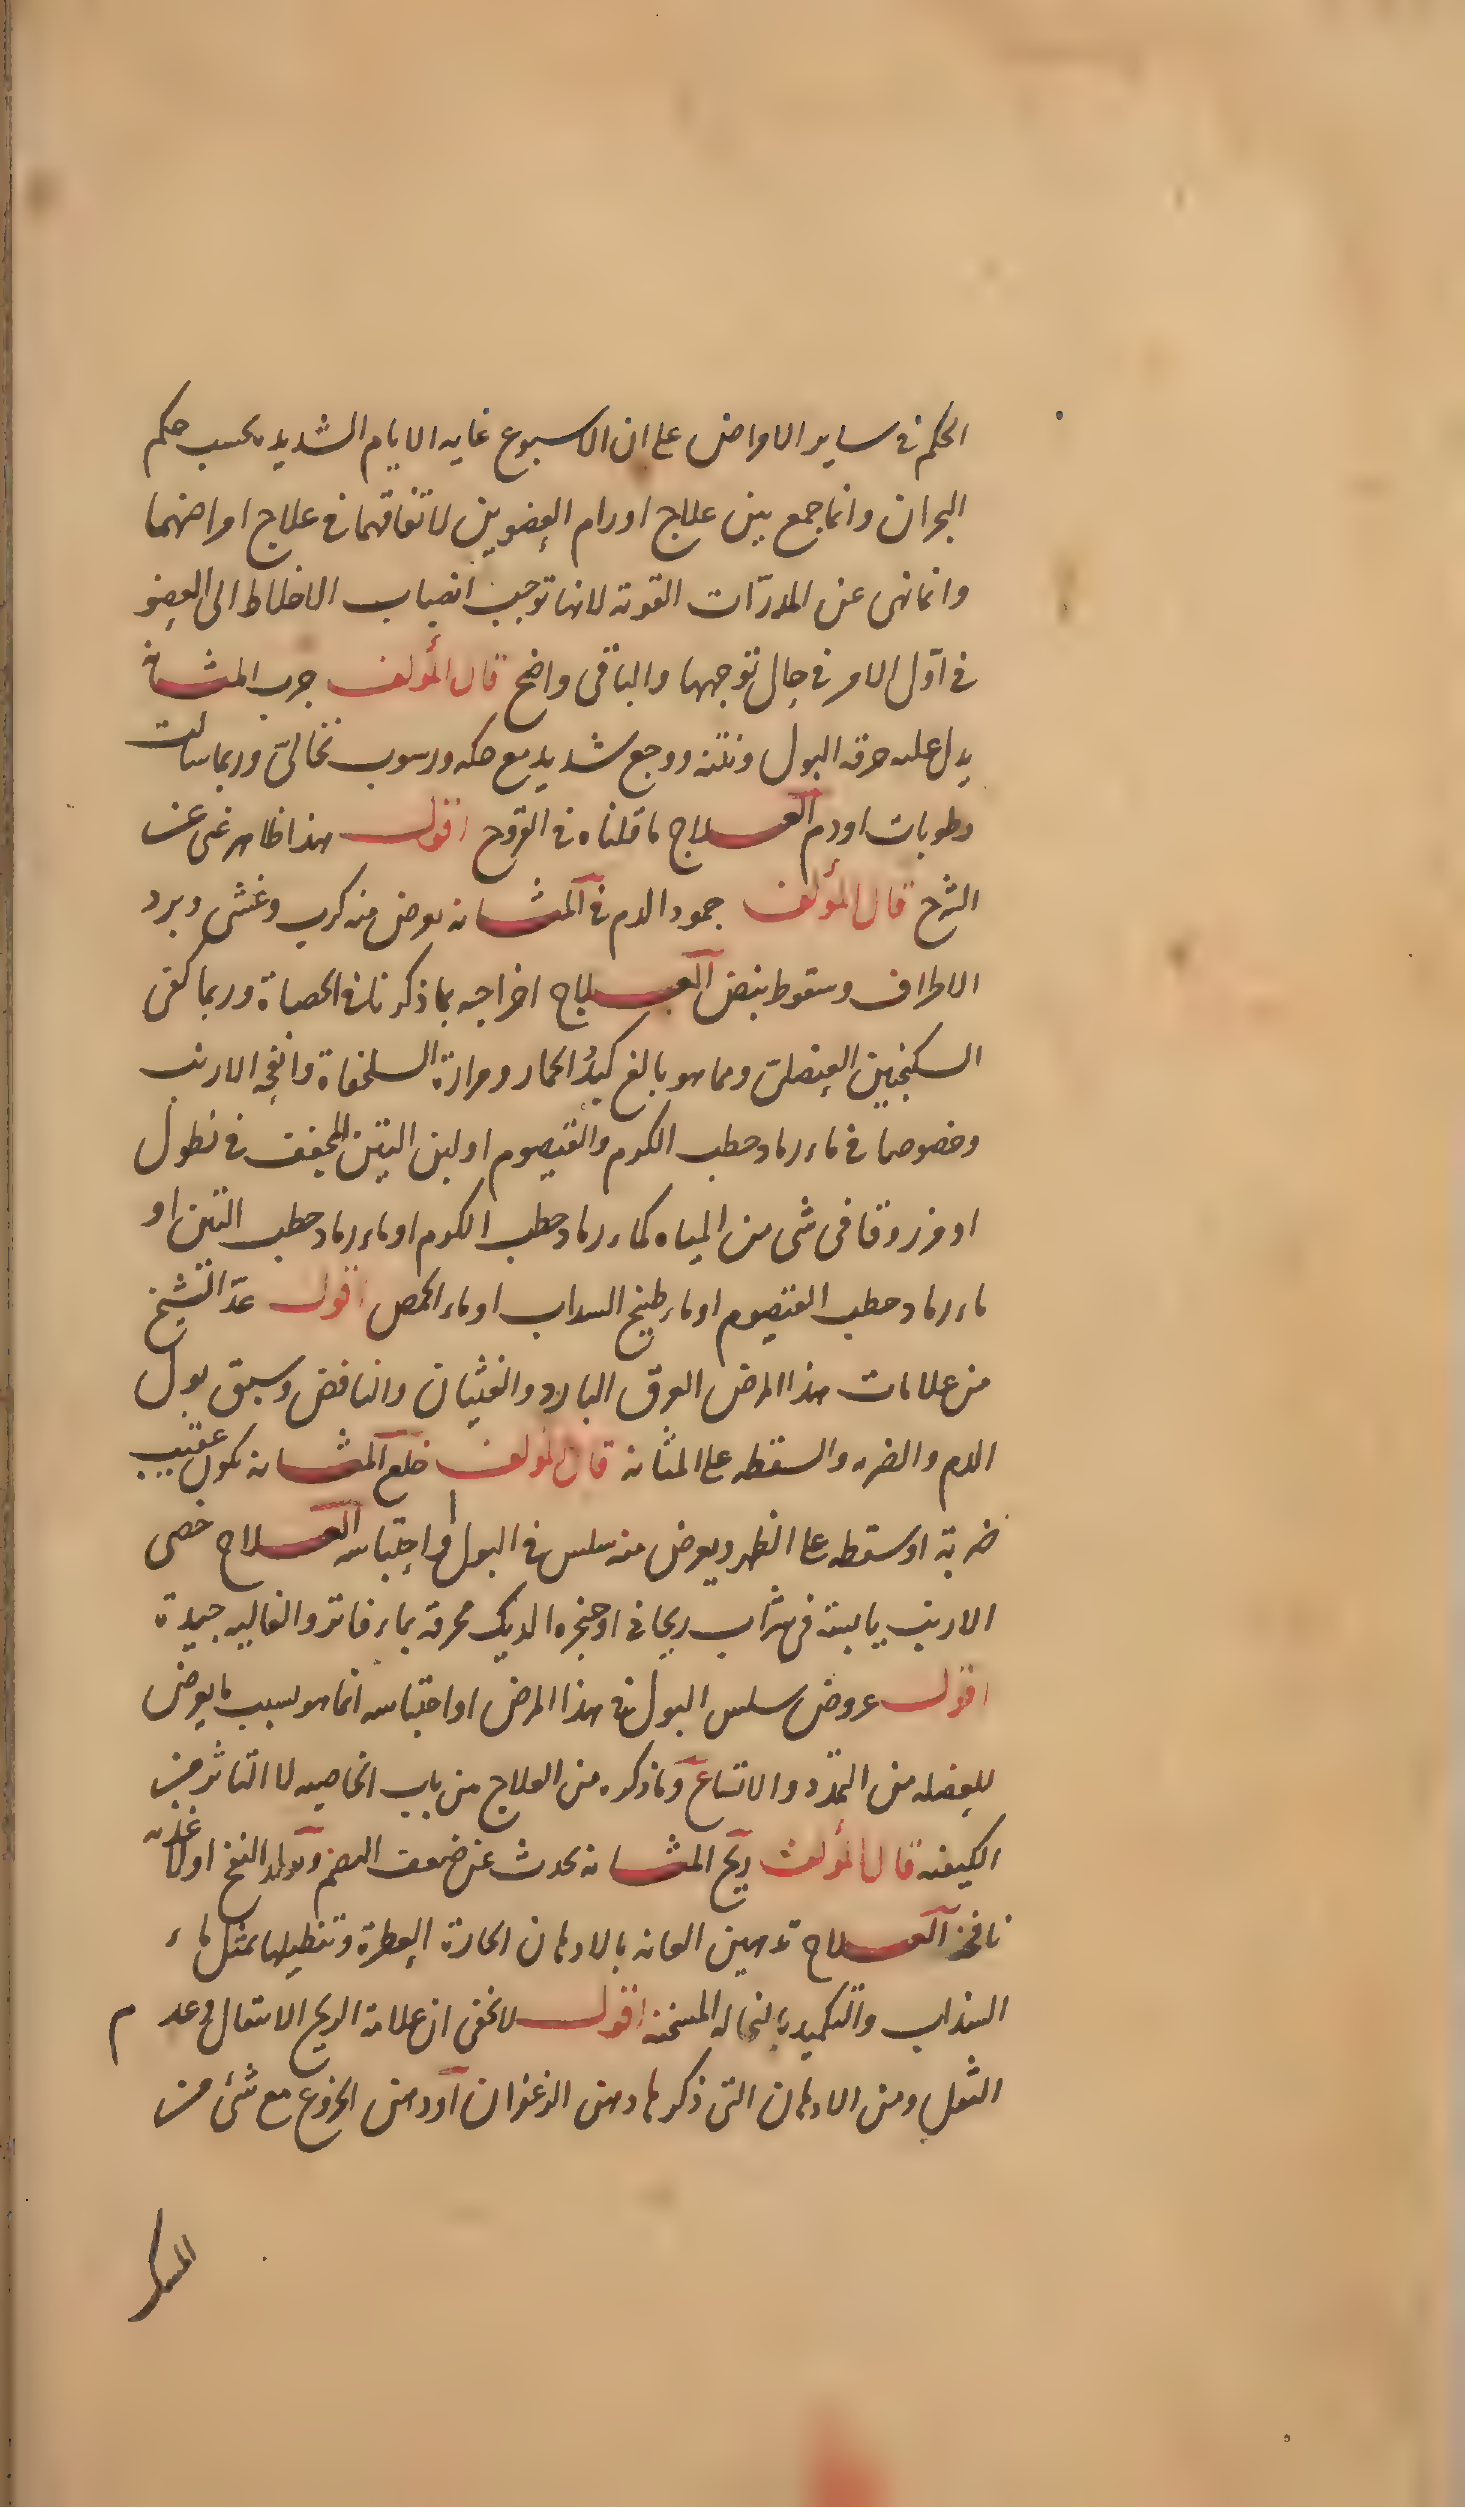 الحكم في ساير الامراض على ان الاسبوع غايه الايام الشديد بحسب حكم
البحران وانما جمع بين علاج اورام العضوين لاتفاقهما في علاج امراضهما
وانما نهى عن المدرّات القوية لانها توجب انصباب الاخلاط الى العضو
في اوّل الامر في حال توجهها والباقى واضح قال المؤلف جرب المثانة
يدل عليه حرقه البول ونتنه ووجع شديد مع حكه ورسوب نخالىّ وربما سالت
رطوبات او دم العلاج ما قلناه في القروح اقول هذا ظاهر غنى عن
الشرح قال المؤلف جمود الدم في المثانه يعرض منه كرب وغشى وبرد
الاطراف وسقوط نبض العلاج اخراجه بما ذكرناه في الحصاة وربما كفى
السكنجبين العنصلىّ ومما هو بالغ كبدُ الحمار ومرارة السلحفاة وانفحه الارنب
وخصوصا في ماء رماد حطب الكرم والقيصوم او لبن التين المجفف في نطول
او مزروقا فى شى من المياه كماء رماد حطب الكرم او ماء رماد حطب التين او
ماء رماد حطب القيصوم او ماء طبيخ السداب او ماء الحمص اقول عدّ الشيخ
من علامات هذا المرض العرق البارد والغثيان والنافض وسبق بول
الدم والضربه والسقطه على المثانه قال المؤلف خلع المثانه يكون عقيب
ضربة او سقطه على الظهر ويعرض منه سلس في البول او احتباسه العلاج خصى
الارنب يابسة فى شراب ريحانى او حنجره الديك محرقة بماء فاتر والغاليه جيدة
اقول عروض سلس البول في هذا المرض او احتباسه انما هو بسبب ما يعرض
للعضله من التمدّد والاتساع وما ذكره من العلاج من باب الخاصيه لا التاثر من
الكيفيه قال المؤلف ريح المثانه يحدث عن ضعف الهضم وتولد النفخ او لاغذيه
نافخة العلاج تدهين العانه بالادهان الحارة العطرة وتنطيلها بمثل ماء
السذاب والتكميد بالنخاله المسخنة اقول لا يخفى ان علامة الريح الانتقال وعدم
الثقل ومن الادهان التى ذكرها دهن الزعفران او دهن الخروع مع شئ من
المسك